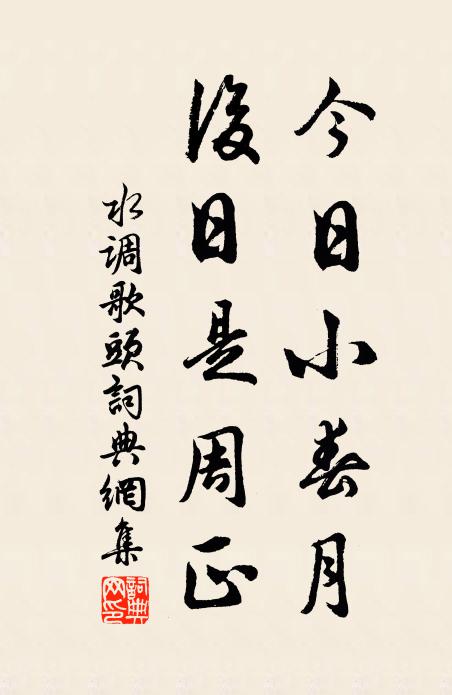 今日小春月
後日是周正
水调歌頭詞典網集
詞典网印